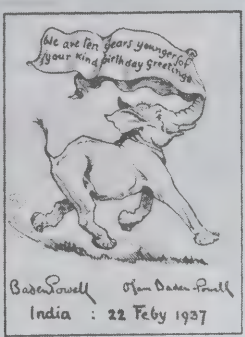 We are ten years younger for
your kind birthday Greetings
Baden Powell Olave Baden-Powell
India : 22 Feby 1937